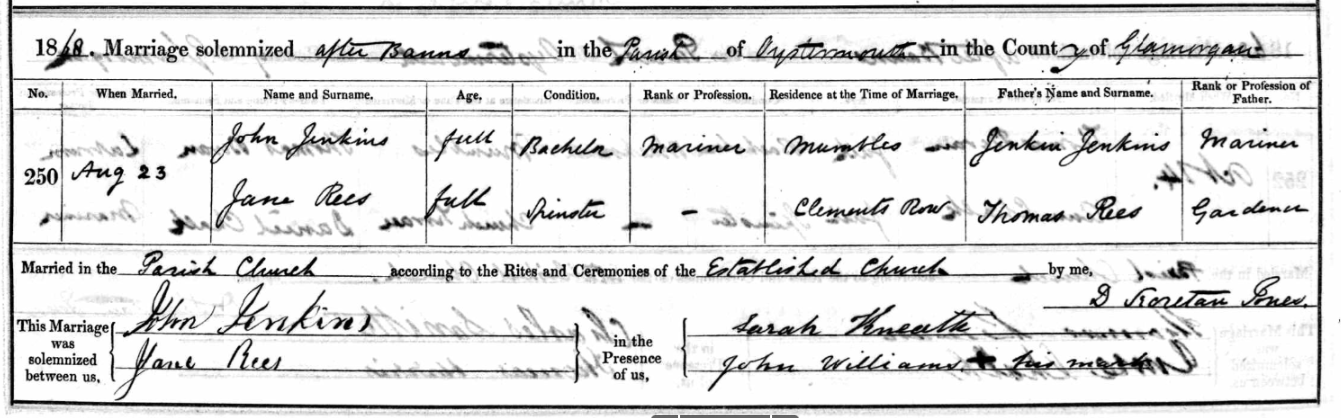 1868. Marriage solemnized after Banns in the Parish of Oystermouth in the County of Glamorgan
No. When Married. Name and Surname. Age. Condition. Rank or Profession. Residence at the Time of Marriage. Father's Name and Surname. Rank or Profession of Father.
250 Aug 23 John Jenkins full Bachelor Mariner Mumbles Jenkin Jenkins Mariner
Jane Rees full Spinster - Clements Row Thomas Rees Gardener
Married in the Parish Church according to the Rites and Ceremonies of the Established Church by me,
D Jones.
This Marriage was solemnized between us, John Jenkins in the Presence of us, Sarah Kneath
Jane Rees John Williams + his mark